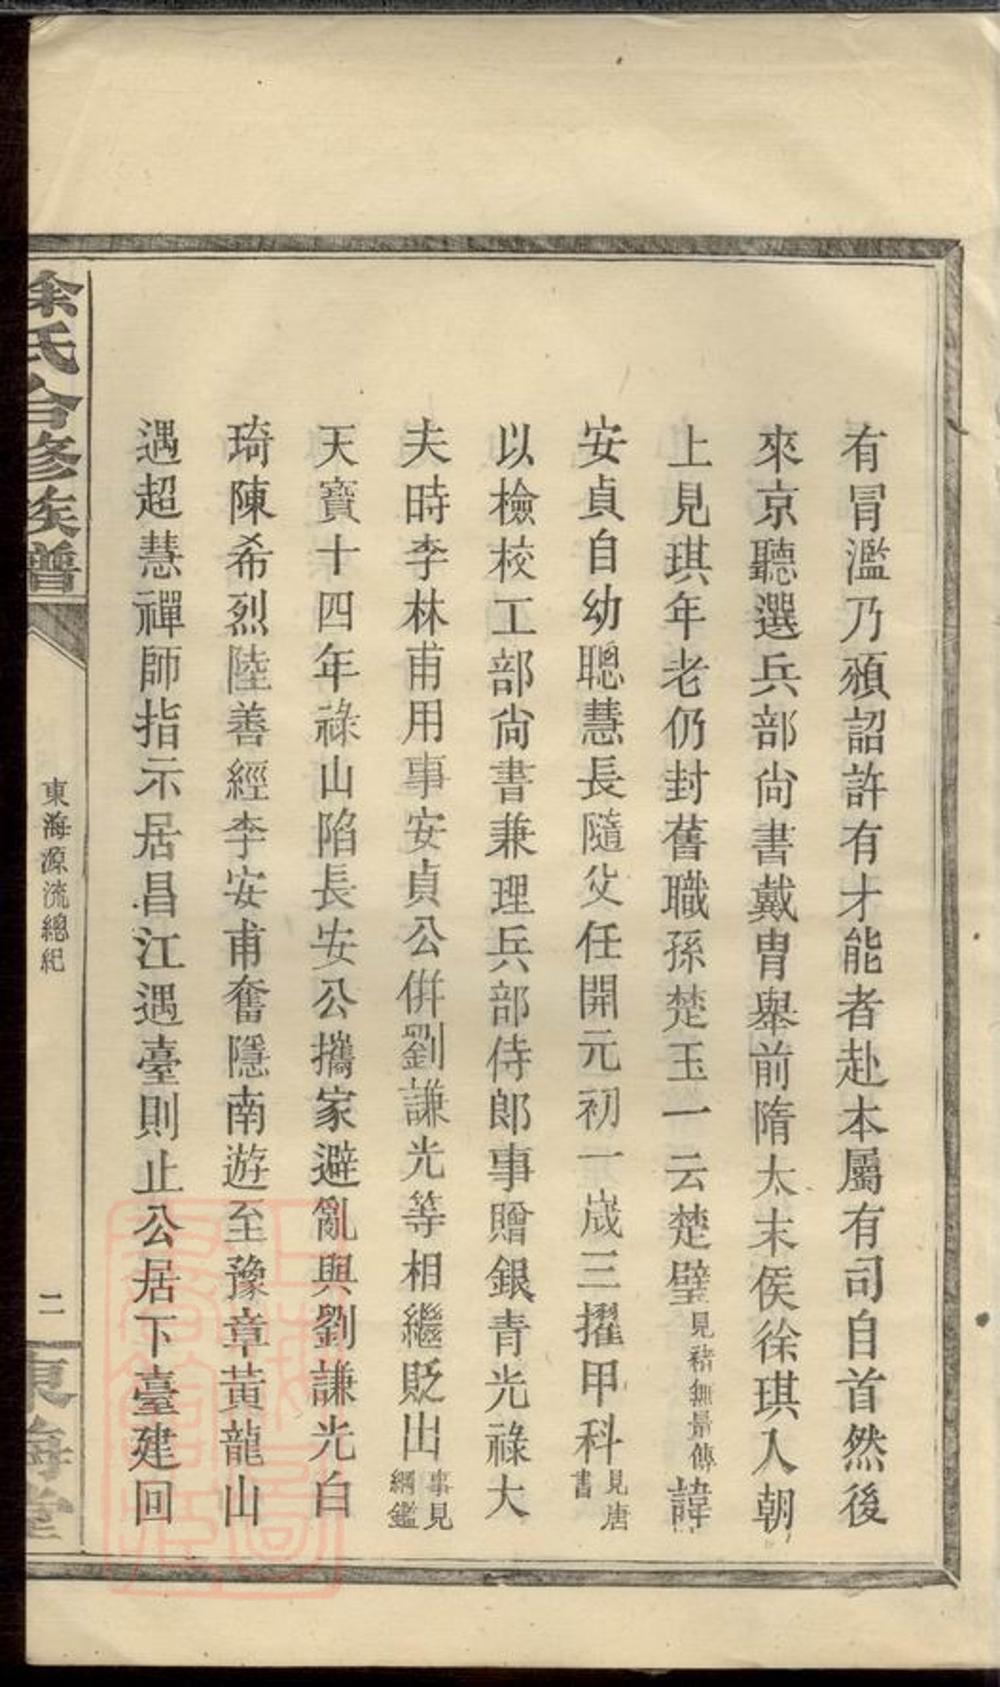 有冒濫乃頒詔許有才能者赴本屬有司自首然後
來京聽選兵部尙書戴胄舉前隋太末侯徐琪入朝
上見琪年老仍封舊職孫楚玉一云楚璧見褚無景傳諱
安貞自幼聰慧長隨父任開元初一歲三擢甲科見唐書
以檢校工部尙書兼理兵部侍郎事贈銀青光祿大
夫時李林甫用事安貞公併劉謙光等相繼貶出事見綱鑑
天寶十四年祿山陷長安公攜家避亂與劉謙光白
琦陳希烈陸善經李安甫奮隱南遊至豫章黃龍山
遇超慧禪師指示居昌江遇臺則止公居下臺建回
徐氏合修族譜
東海源流總紀
二
東海堂